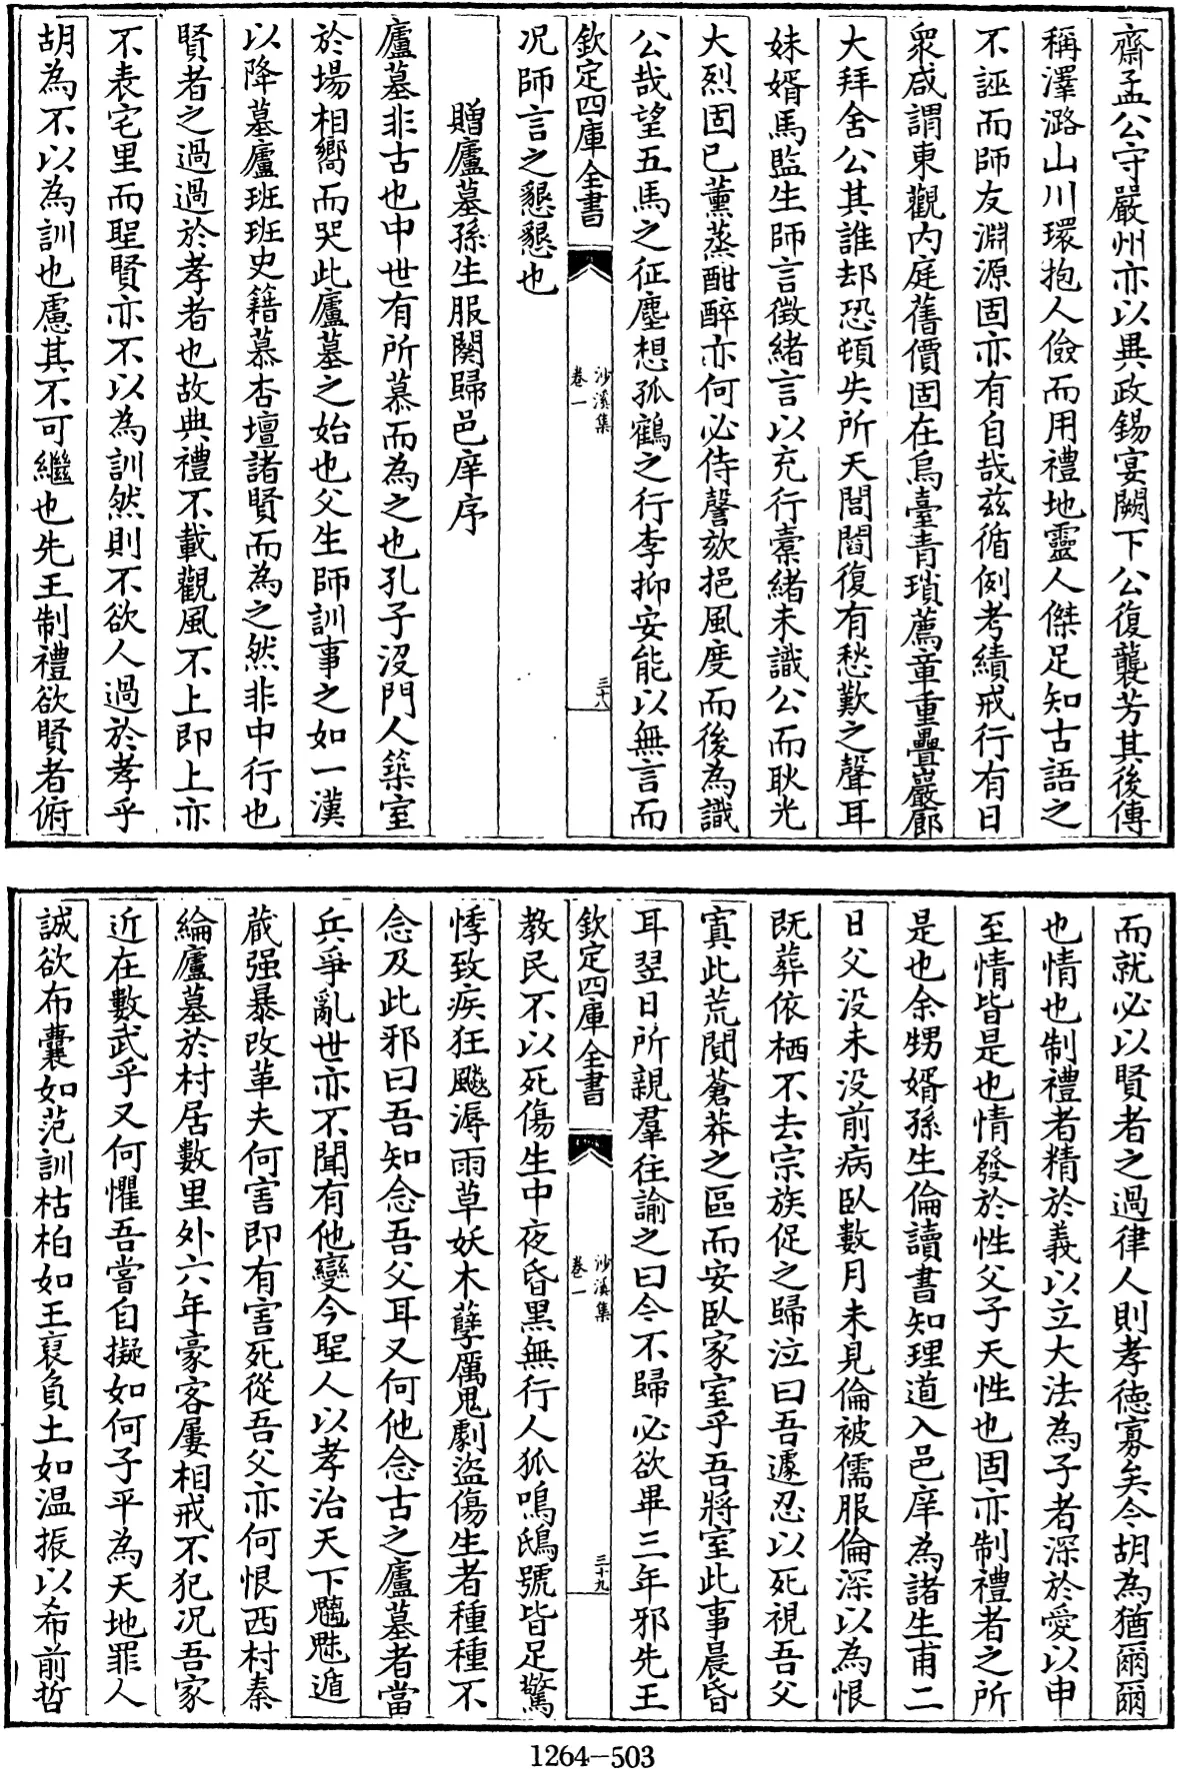 齋孟公守嚴州亦以異政錫宴闕下公復襲芳其後傳
稱澤潞山川環抱人儉而用禮地靈人傑足知古語之
不誣而師友淵源固亦有自哉兹循例考績戒行有日
衆咸謂東觀内庭舊價固在烏臺青瑣薦章重疊巖廊
大拜舍公其誰却恐頓失所天閭閻復有愁歎之聲耳
妹婿馬監生師言徵緒言以充行橐緒未識公而耿光
大烈固已薰蒸酣醉亦何必侍謦欬挹風度而後為識
公哉望五馬之征塵想孤鶴之行李抑安能以無言而
欽定四庫全書
沙溪集
卷一
三十八
况師言之懇懇也
贈廬墓孫生服闋歸邑庠序
廬墓非古也中世有所慕而為之也孔子没門人築室
於場相嚮而哭此廬墓之始也父生師訓事之如一漢
以降墓廬班班史籍慕杏壇諸賢而為之然非中行也
賢者之過過於孝者也故典禮不載觀風不上即上亦
不表宅里而聖賢亦不以為訓然則不欲人過於孝乎
胡為不以為訓也慮其不可繼也先王制禮欲賢者俯
而就必以賢者之過律人則孝徳寡矣今胡為猶爾爾
也情也制禮者精於義以立大法為子者深於愛以申
至情皆是也情發於性父子天性也固亦制禮者之所
是也余甥婿孫生倫讀書知理道入邑庠為諸生甫二
日父没未没前病臥數月未見倫被儒服倫深以為恨
既葬依栖不去宗族促之歸泣曰吾遽忍以死視吾父
寘此荒閴蒼莽之區而安臥家室乎吾將室此事晨昏
耳翌日所親羣往諭之曰今不歸必欲畢三年邪先王
欽定四庫全書
沙溪集
卷一
三十九
教民不以死傷生中夜昏黑無行人狐鳴鴟號皆足驚
悸致疾狂飈溽雨草妖木孽厲鬼劇盜傷生者種種不
念及此邪曰吾知念吾父耳又何他念古之廬墓者當
兵爭亂世亦不聞有他變今聖人以孝治天下魑魅遁
蔵强暴改革夫何害即有害死從吾父亦何恨西村秦
綸廬墓於村居數里外六年豪客屢相戒不犯况吾家
近在數武乎又何懼吾嘗自擬如何子平為天地罪人
誠欲布囊如范訓枯柏如王裒負土如温振以希前哲
1264-503